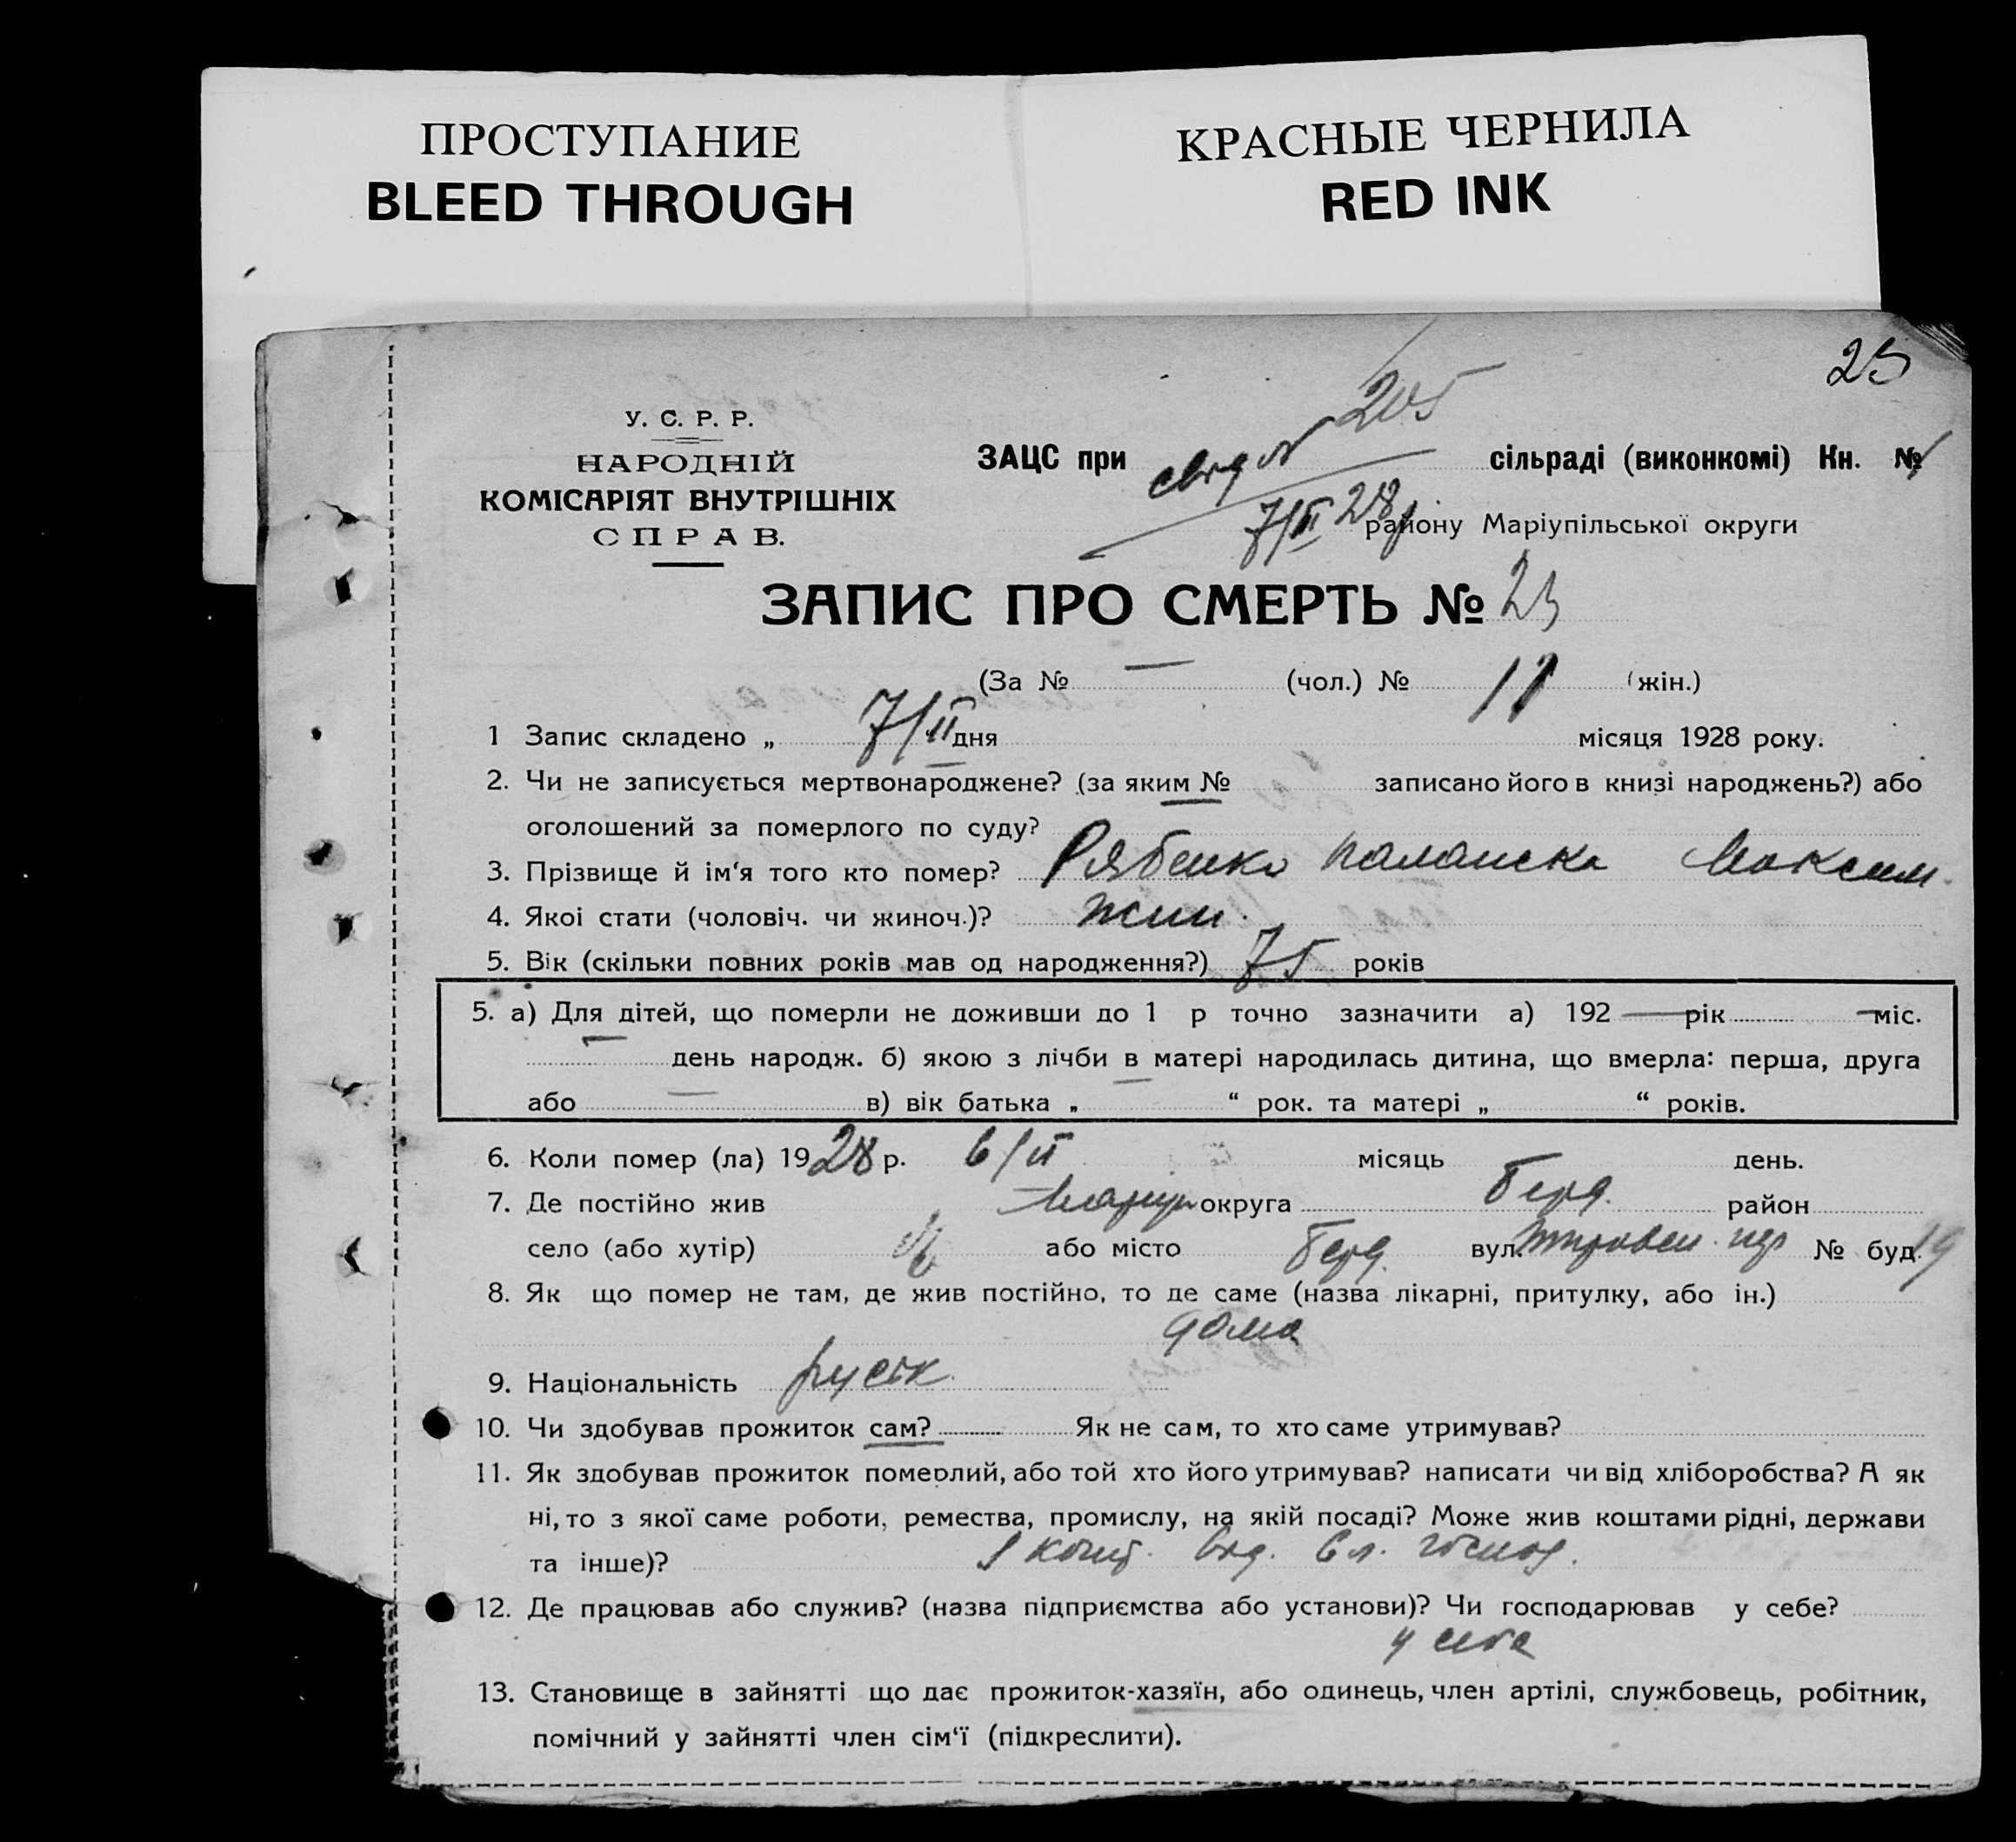 ПРОСТУПАНИЕ
BLEED THROUGH
КРАСНЫЕ ЧЕРНИЛА
RED INK
23
У. С. Р. Р.
НАРОДНІЙ
КОМІСАРІЯТ ВНУТРІШНІХ
СПРАВ.
205
ЗАЦС при сільраді (виконкомі) Кн. №
7/II 28 р району Маріупільської округи
ЗАПИС ПРО СМЕРТЬ № 23
(За № — (чол.) № 11 (жін.)
1 Запис складено „ 7/II дня місяця 1928 року.
2. Чи не записується мертвонароджене? (за яким № записано його в книзі народжень?) або
оголошений за померлого по суду?
3. Прізвище й ім‘я того кто помер? Рябенко Паланска Максим.
4. Якої стати (чоловіч. чи жиноч.)? жин.
5. Вік (скільки повних років мав од народження?) 75 років
5. а) Для дітей, що померли не доживши до 1 р точно зазначити а) 192 — рік — міс.
— день народж. б) якою з лічби в матері народилась дитина, що вмерла: перша, друга
або — в) вік батька „ “ рок. та матері „ “ років.
6. Коли помер (ла) 1928 р. 6/II місяць день.
7. Де постійно жив Маріуп округа Берд. район
село (або хутір) або місто Берд. вул. № буд. 19
8. Як що помер не там, де жив постійно, то де саме (назва лікарні, притулку, або ін.)
дома
9. Національність руск.
10. Чи здобував прожиток сам? Як не сам, то хто саме утримував?
11. Як здобував прожиток померлий, або той хто його утримував? написати чи від хліборобства? А як
ні, то з якої саме роботи, ремества, промислу, на якій посаді? Може жив коштами рідні, держави
та інше)?
12. Де працював або служив? (назва підприємства або установи)? Чи господарював у себе?
у себе
13. Становище в зайнятті що дає прожиток-хазяїн, або одинець, член артілі, службовець, робітник,
помічний у зайнятті член сім‘ї (підкреслити).